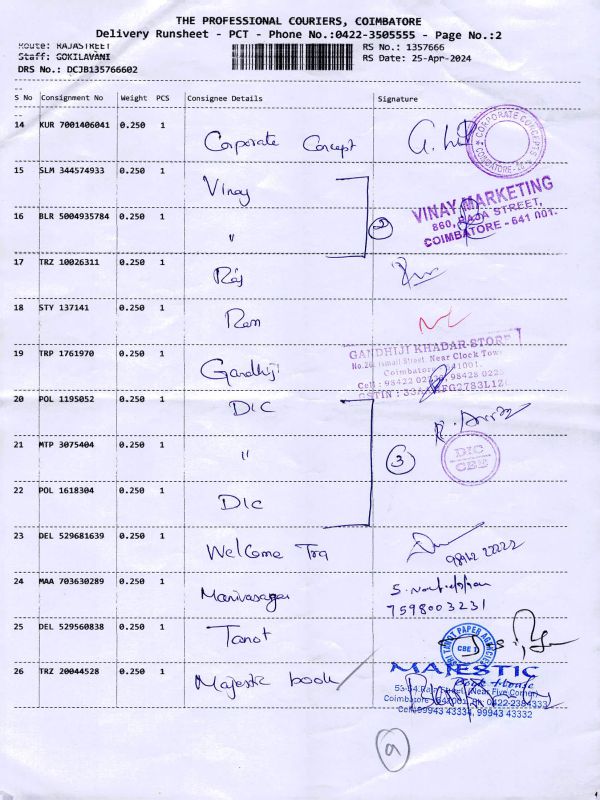 THE PROFESSIONAL COURIERS, COIMBATORE
Delivery Runsheet - PCT - Phone No.:0422-3505555 - Page No.:2
Route: RAJASTREET RS No.: 1357666
Staff: GOKILAVANI RS Date: 25-Apr-2024
DRS No.: DCJB135766602
S No Consignment No Weight PCS Consignee Details Signature
14 KUR 7001406041 0.250 1 Corporate Concept
CORPORATE CONCEPTS COIMBATORE
15 SLM 344574933 0.250 1 Vinay
16 BLR 5004935784 0.250 1 " 2
VINAY MARKETING
860, RAJA STREET,
COIMBATORE - 641 001.
17 TRZ 10026311 0.250 1 Raj
18 STY 137141 0.250 1 Ram
19 TRP 1761970 0.250 1 Gandhiji
GANDHIJI KHADAR STORE
No.26, Ismail Street, Near Clock Tow
Coimbatore 641001.
Cell : 98422 98428 022
GSTIN : 33
20 POL 1195052 0.250 1 DIC
21 MTP 3075404 0.250 1 " 3
DIC
CBE
22 POL 1618304 0.250 1 DIC
23 DEL 529681639 0.250 1 Welcome Tra
24 MAA 703630289 0.250 1 Manivasagar
7598003231
25 DEL 529560838 0.250 1 Tanot
SRI TANOT PAPER AGENCIES
CBE 1
26 TRZ 20044528 0.250 1 Majestic book
MAJESTIC
Book House
53-54, Raja Street, (Near Five Corner)
Coimbatore - 641001. Ph: 0422-2384333
Cell: 99943 43334, 99943 43332
a